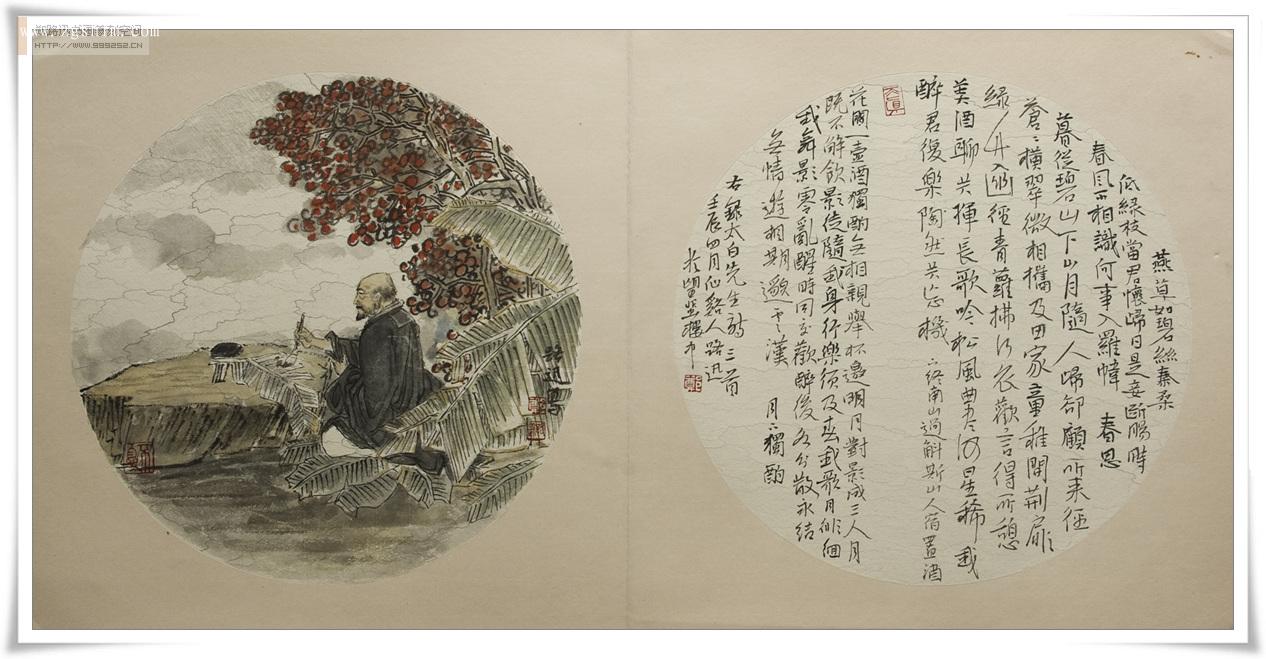 HTTP://WWW.999252.CN
路迅寫
燕草如碧絲秦桑
低綠枝當君懷歸日是妾斷腸時
春風不相識何事入羅幃 春思
暮從碧山下山月隨人歸卻顧所來徑
蒼〻橫翠微相攜及田家童稚開荊扉
綠竹入幽徑青蘿拂行衣歡言得所憩
美酒聊共揮長歌吟松風曲盡河星稀我
醉君復樂陶然共忘機 下終南山過斛斯山人宿置酒
花間一壺酒獨酌無相親舉杯邀明月對影成三人月
既不解飲影徒隨我身行樂須及春我歌月徘徊
我舞影零亂醒時同交歡醉後各分散永結
無情遊相期邈雲漢 月下獨酌
右錄太白先生詩三首
壬辰四月仙谿人路迅